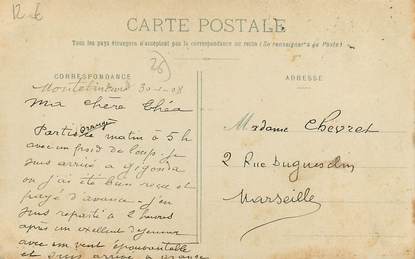 12 €
CARTE POSTALE
Tous les pays étrangers n'acceptent pas la correspondance au recto (Se renseigner à la Poste)
26
CORRESPONDANCE
ADRESSE
30-1-08
Ma chère Théa
Partis d'Orange le matin à 5h
avec un froid de loup. Je
suis arrivé à gigondas
où j'ai été bien reçu et
payé d'avance. J'en
suis reparti à 2 heures
après un excellent déjeuner
avec un vent épouvantable
et suis arrivé à orange
Madame Chevret
2 Rue Duguesclin
Marseille